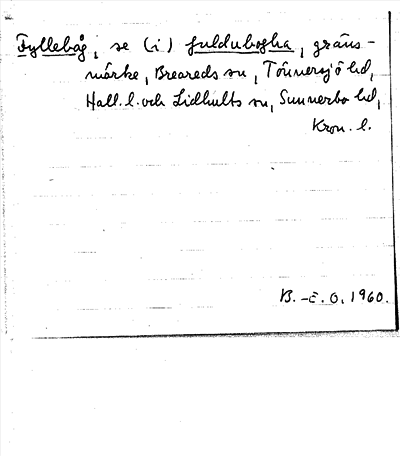 Fyllebåg, se (i) fuldubogha, gräns-
märke, Breareds sn, Tönnersjö hd,
Hall. l. och Lidhults sn, Sunnerbo hd,
Kron. l.
B.-E. O. 1960.